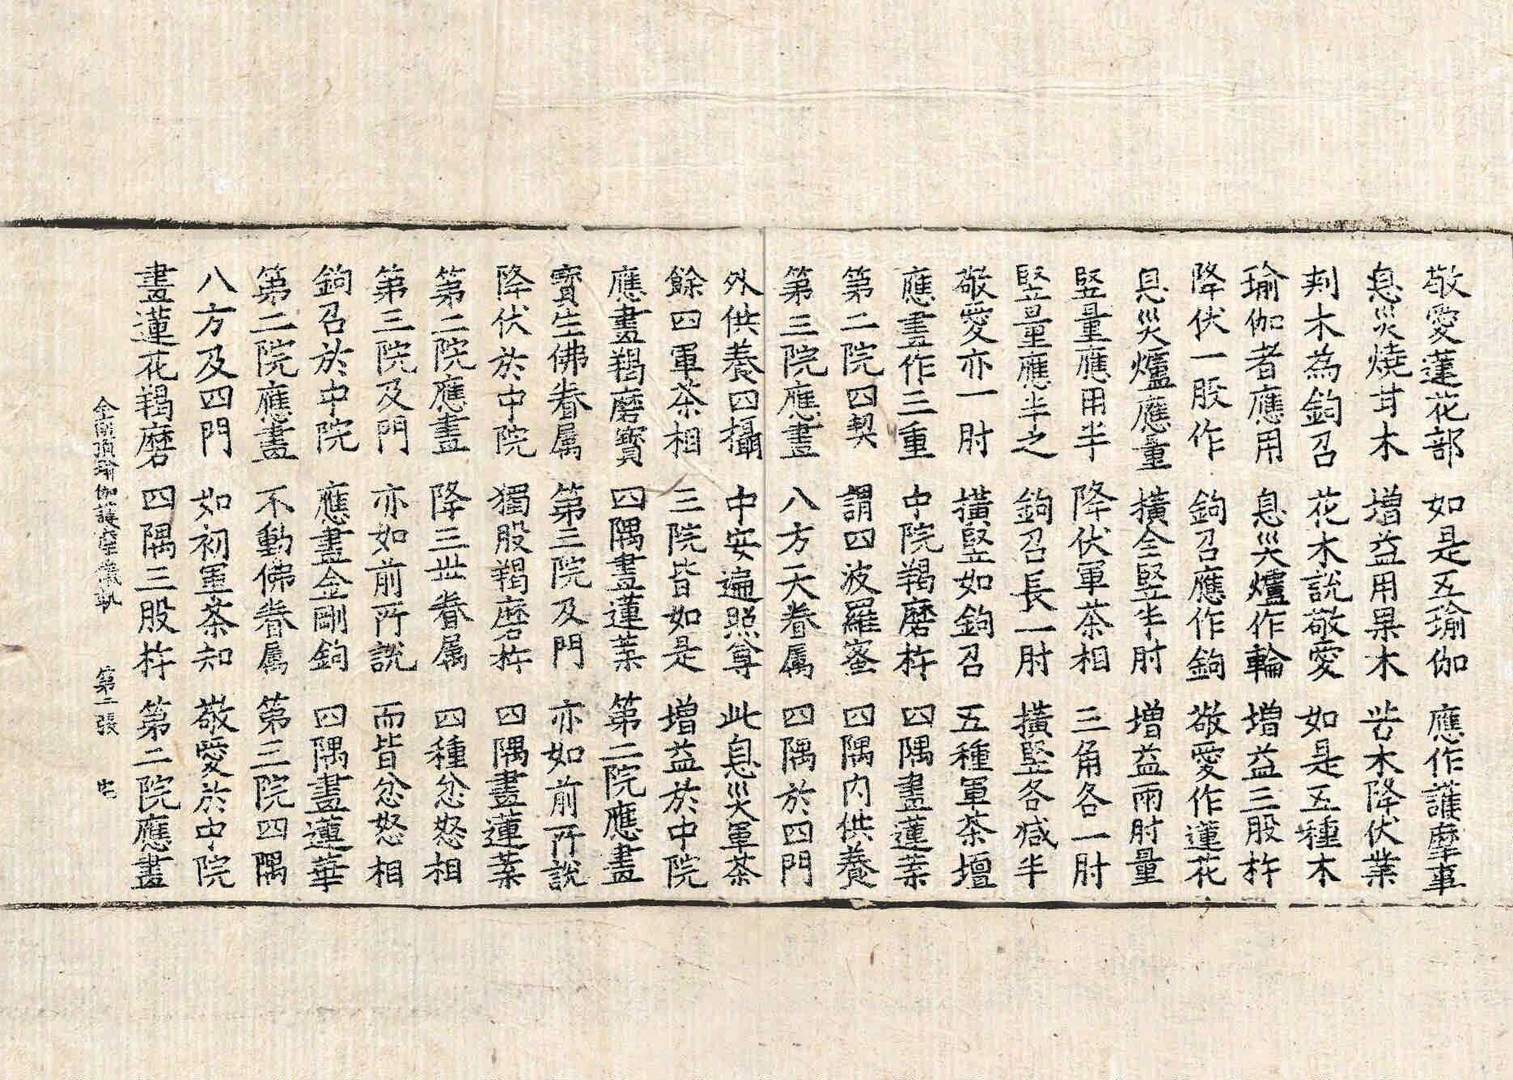 敬愛蓮花部 如是五瑜伽 應作護摩事
息災燒甘木 增益用果木 苦木降伏業
刾木為鉤召 花木說敬愛 如是五種木
瑜伽者應用 息災爐作輪 增益三股杵
降伏一股作 鉤召應作鉤 敬愛作蓮花
息災爐應量 橫全竪半肘 增益兩肘量
竪量應用半 降伏軍荼相 三角各一肘
竪量應半之 鉤召長一肘 橫竪各減半
敬愛亦一肘 橫竪如鉤召 五種軍荼壇
應畫作三重 中院羯磨杵 四隅畫蓮葉
第二院四契 謂四波羅蜜 四隅內供養
第三院應畫 八方天眷属 四隅於四門
外供養四攝 中安遍照尊 此息災軍荼
餘四軍荼相 三院皆如是 增益於中院
應畫羯磨寶 四隅畫蓮葉 第二院應畫
寶生佛眷属 第三院及門 亦如前所說
降伏於中院 獨股羯磨杵 四隅畫蓮葉
第二院應畫 降三世眷属 四種忿怒相
第三院及門 亦如前所說 而皆忿怒相
鉤召於中院 應畫金剛鉤 四隅畫蓮華
第二院應畫 不動佛眷属 第三院四隅
八方及四門 如初軍荼知 敬愛於中院
畫蓮花羯磨 四隅三股杵 第二院應畫
金剛頂瑜伽護摩儀軌 第二張